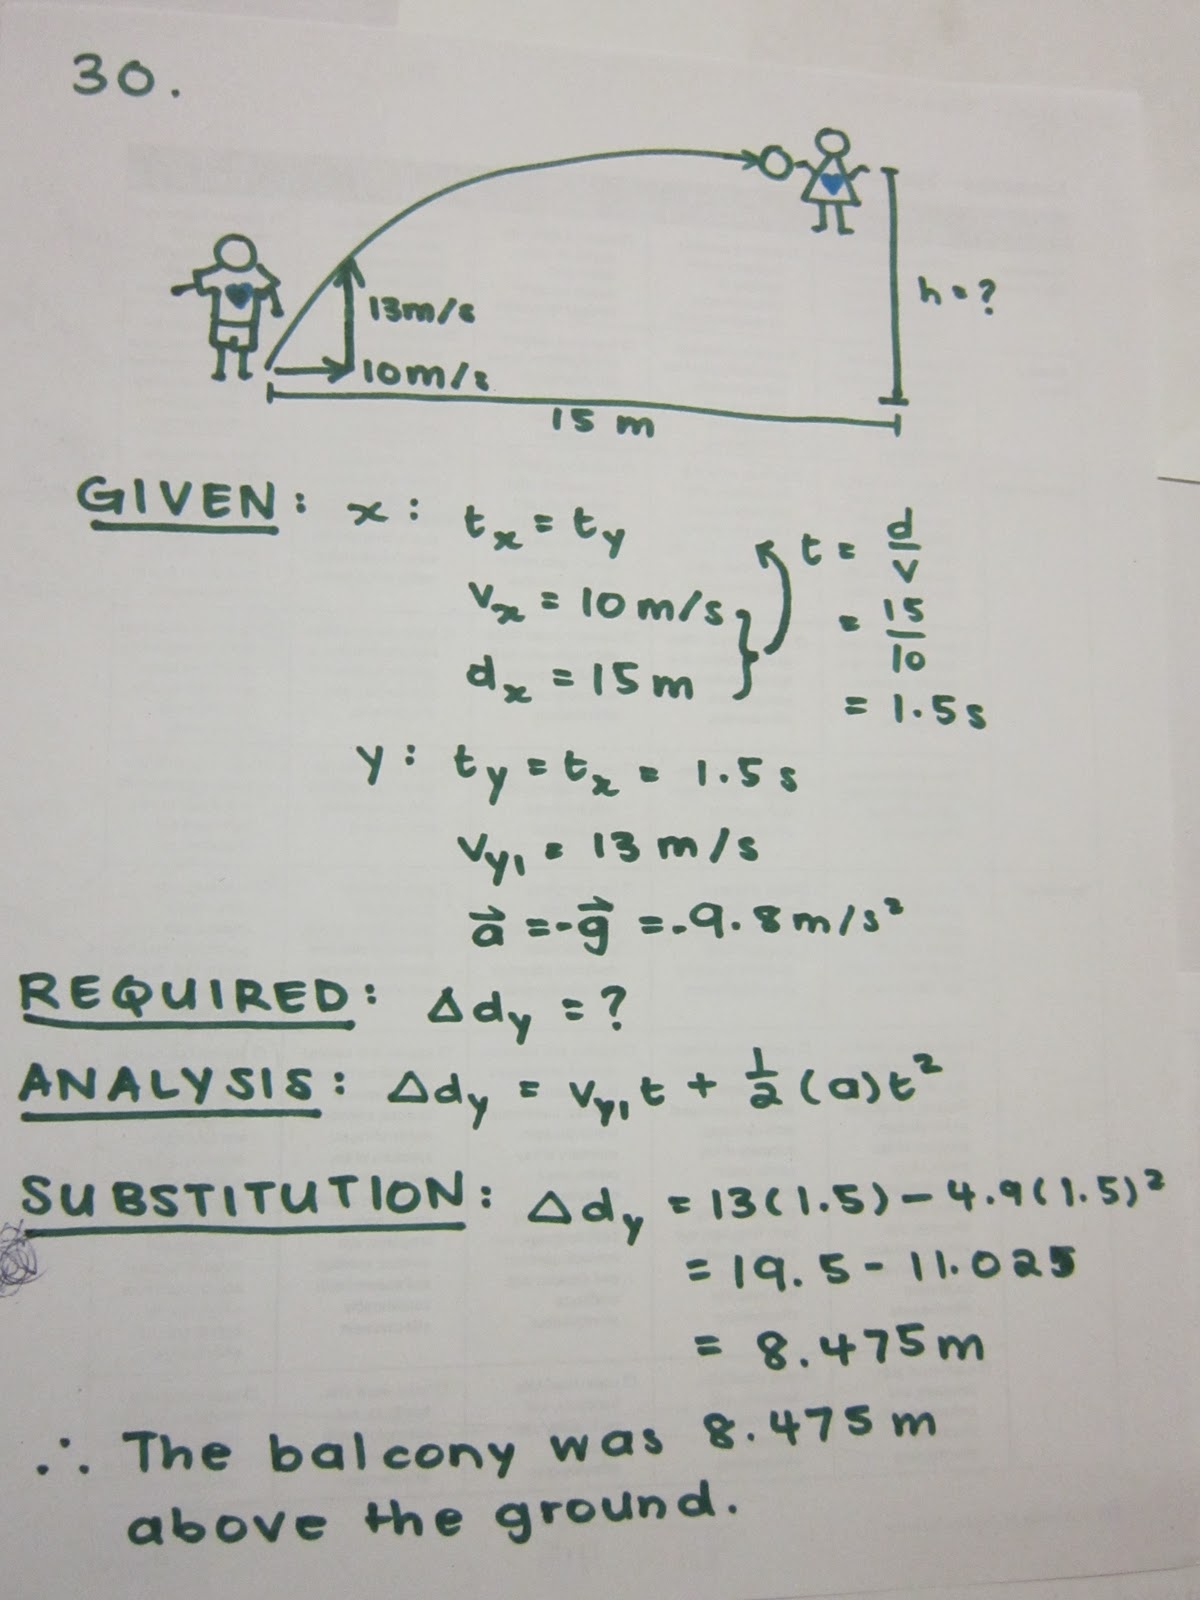 30.
13m/s
10m/s
15 m
h = ?
GIVEN: x: tx = ty
t = d/v
vx = 10 m/s
= 15/10
dx = 15 m
= 1.5 s
y: ty = tx = 1.5 s
vy1 = 13 m/s
a⃗ = -g⃗ = -9.8 m/s²
REQUIRED: Δdy = ?
ANALYSIS: Δdy = vy1 t + 1/2 (a) t²
SUBSTITUTION: Δdy = 13(1.5) - 4.9(1.5)²
= 19.5 - 11.025
= 8.475 m
∴ The balcony was 8.475 m
above the ground.